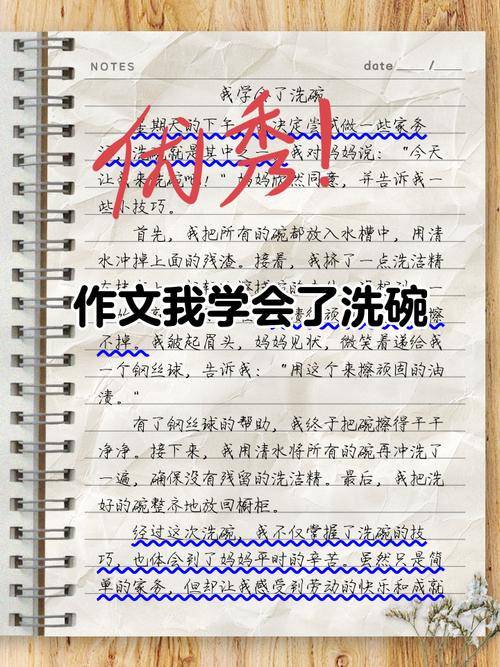 NOTES
date /
我学会了洗碗
星期天的下午 决定尝试做一些家务
洗碗就是其中之一 我对妈妈说："今天
让我来洗碗吧！"妈妈欣然同意，并告诉我一
些小技巧。
优秀！
首先，我把所有的碗都放入水槽中，用清
水冲掉上面的残渣。接着，我挤了一点洗洁精
作文我学会了洗碗
不掉。我皱起眉头，妈妈见状，微笑着递给我
一个钢丝球，告诉我："用这个来擦顽固的油
渍。"
有了钢丝球的帮助，我终于把碗擦得干干
净净。接下来，我用清水将所有的碗再冲洗了
一遍，确保没有残留的洗洁精。最后，我把洗
好的碗整齐地放回橱柜。
经过这次洗碗，我不仅掌握了洗碗的技
巧，也体会到了妈妈平时的辛苦。虽然只是简
单的家务，但却让我感受到劳动的快乐和成就